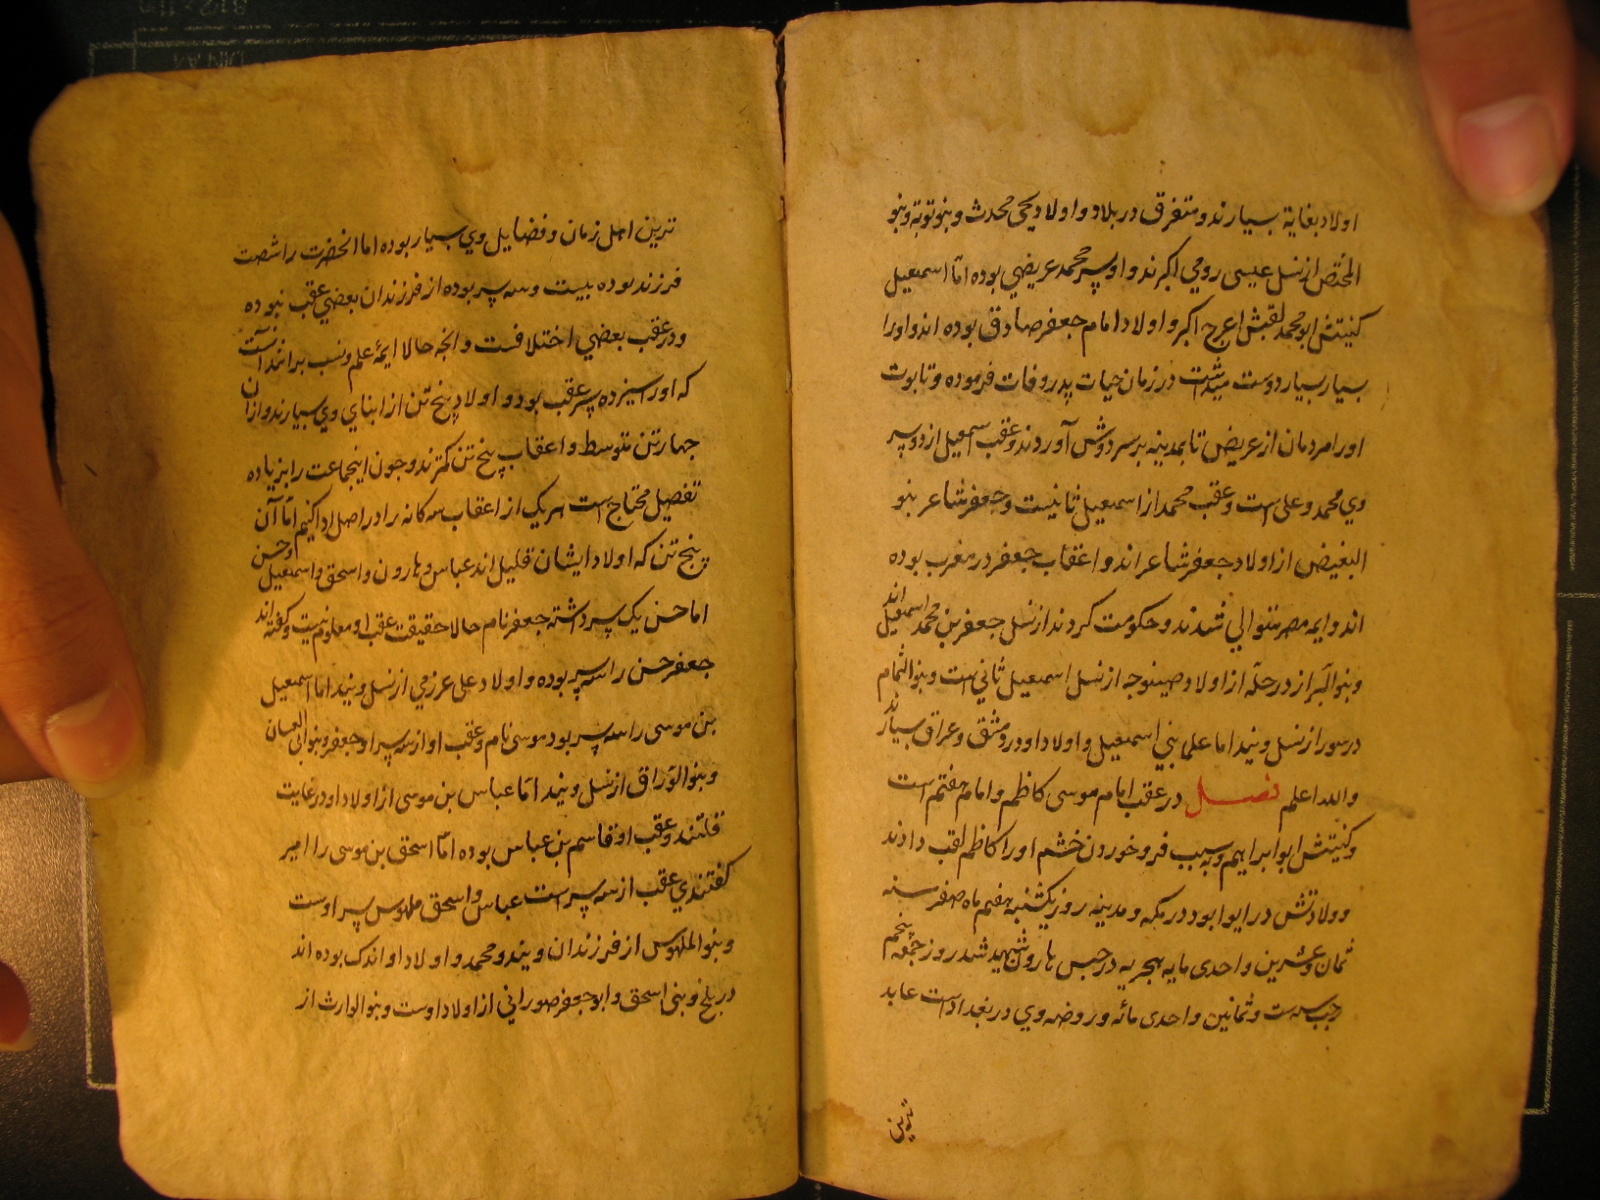 اولاد بغایة بسیارند و متفرق در بلاد و اولاد یحیی محدث و بنو توبة و بنو
المختص از نسل عیسی رومی اکبرند و او پسر محمد عریضی بوده اما اسمعیل
کنیتش ابو محمد لقبش اعرج اکبر و اولاد امام جعفر صادق بوده اند و اورا
بسیار بسیار دوست میداشت در زمان حیات پدر وفات فرموده و تابوت
اورا مردمان از عریض تا بمدینه بر سر دوش آوردند و عقب اسمعیل از دو پسر
وی محمد و علی است و عقب محمد از اسمعیل ثانیست و جعفر شاعر بنو
البغیض از اولاد جعفر شاعر اند و اعقاب جعفر در مغرب بوده
اند و ایمه مصر متوالی شدند و حکومت کردند از نسل جعفر بن محمد اسمعیل اند
وبنو البزاز در حله از اولاد از نسل اسمعیل ثانی است وبنو التمام
در سور از نسل ویند اما علی بنی اسمعیل و اولاد او در دمشق و عراق بسیارند
والله اعلم فصل در عقب امام موسی کاظم و امام هفتم است
وکنیتش ابو ابراهیم و بسبب فرو خوردن خشم او را کاظم لقب دادند
وولادتش در ابوا بود در مکه و مدینه روز یکشنبه هفتم ماه صفر سنه
ثمان و عشرین و احدی مایه هجریه در حبس هارون شهید شد روز جمعه پنجم
رجب سنه ست و ثمانین و احدی مائه و روضه وی در بغداد است عابد
ترین
ترین اهل زمان و فضایل وی بسیار بوده اما انحضرت را شصت
فرزند بوده بیست و سه پسر بوده از فرزندان بعضی عقب نبوده
و در عقب بعضی اختلافست و انچه حالا ایمهٔ علم و نسب برانند آنست
که او را سیزده پسر عقب بود و اولاد پنج تن از ابنای وی بسیارند و ازان
چهار تن متوسط و اعقاب پنج تن کمترند و چون اینجماعت را بزیاده
تفصیل محتاج است هریک از اعقاب سه کانه را در اصل ادا کنیم اما آن
پنج تن که اولاد ایشان قلیل اند عباس و هارون و اسحق و اسمعیل وحسن
اما حسن یک پسر داشته جعفر نام حالا حقیقت عقب او معلوم نیست وکفته اند
جعفر حسن را سه پسر بوده و اولاد علی عرزمی از نسل ویند اما اسمعیل
بن موسی را سه پسر بود موسی نام و عقب او از سه پسر او جعفر وبنو ابی العساف
وبنو الوراق از نسل ویند اما عباس بن موسی از اولاد او در غایت
قلتند و عقب او قاسم بن عباس بوده اما اسحق بن موسی را امیر
کفتندی عقب از سه پسر است عباس و اسحق ملهوس پسر اوست
وبنو الملهوس از فرزندان ویند و محمد و اولاد او اندک بوده اند
در بلخ و بنی اسحق و ابو جعفر صورانی از اولاد اوست وبنو الوارث از